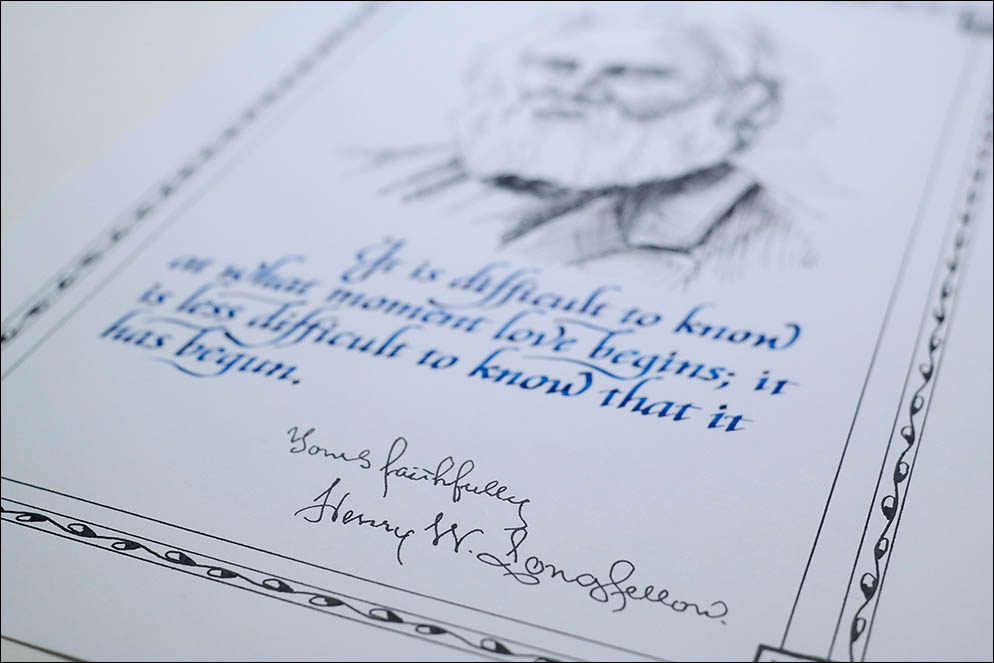 It is difficult to know
at what moment love begins; it
is less difficult to know that it
has begun.
Yours faithfully
Henry W. Longfellow.